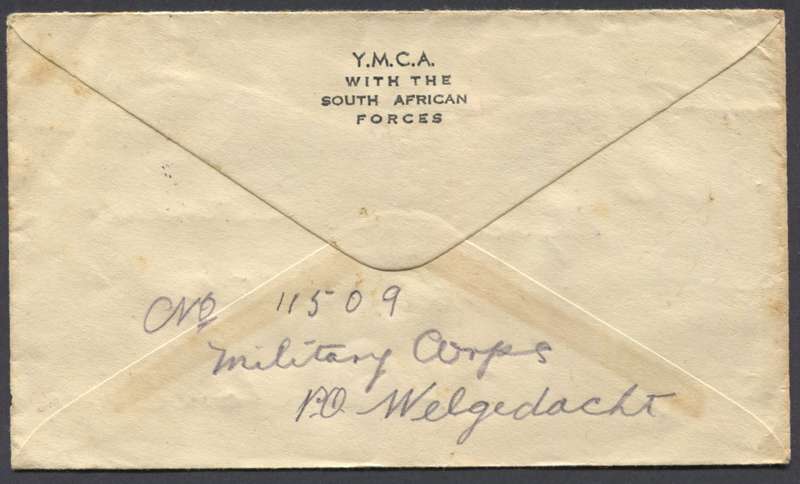 Y.M.C.A.
WITH THE
SOUTH AFRICAN
FORCES
No 11509
Military Corps
P.O. Welgedacht